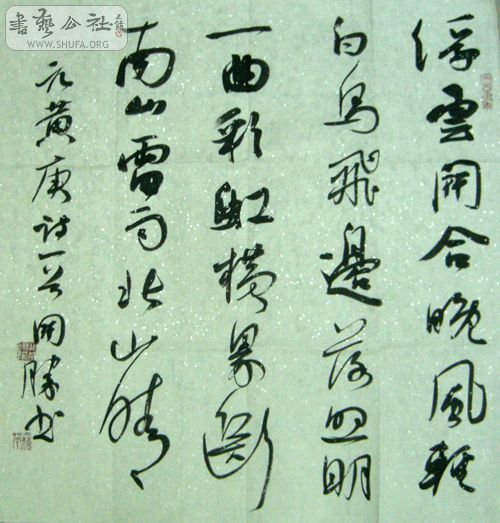 浮雲開合晚風輕
白鳥飛邊落照明
一曲彩虹橫界斷
南山雷雨北山晴
元黄庚诗一首開勝書
書藝公社
WWW.SHUFA.ORG